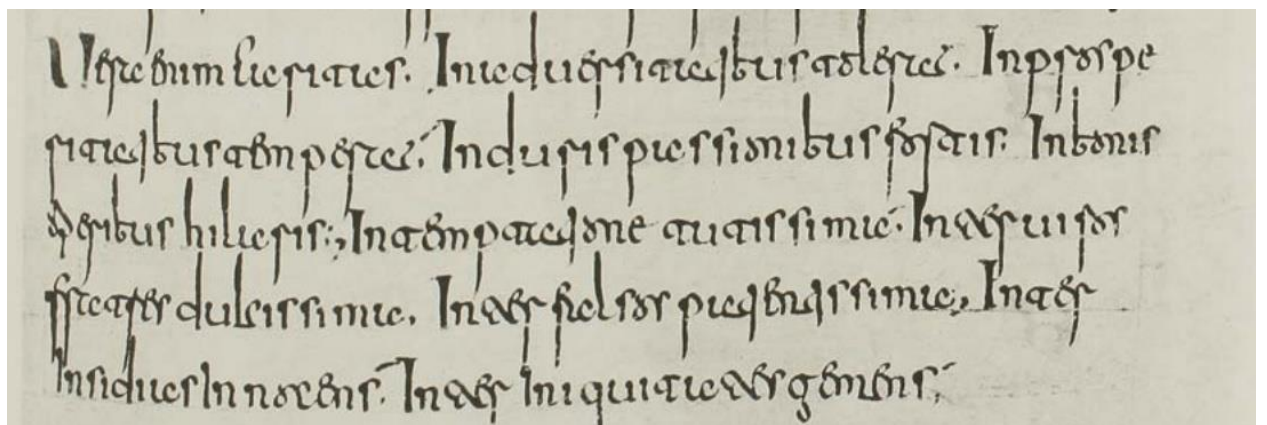 Uera enum caritas. Inaduersitatibus tolerat. Inprospe
ritatibus tenperat. Induris passionibus fortis. Inbonis
operibus hilaris. Intemptatione tutissima. Inter uiros
fratres dulcissima. Inter falsos patientissima. Inter
Insidias Innocens. Inter Iniquitates gemens.